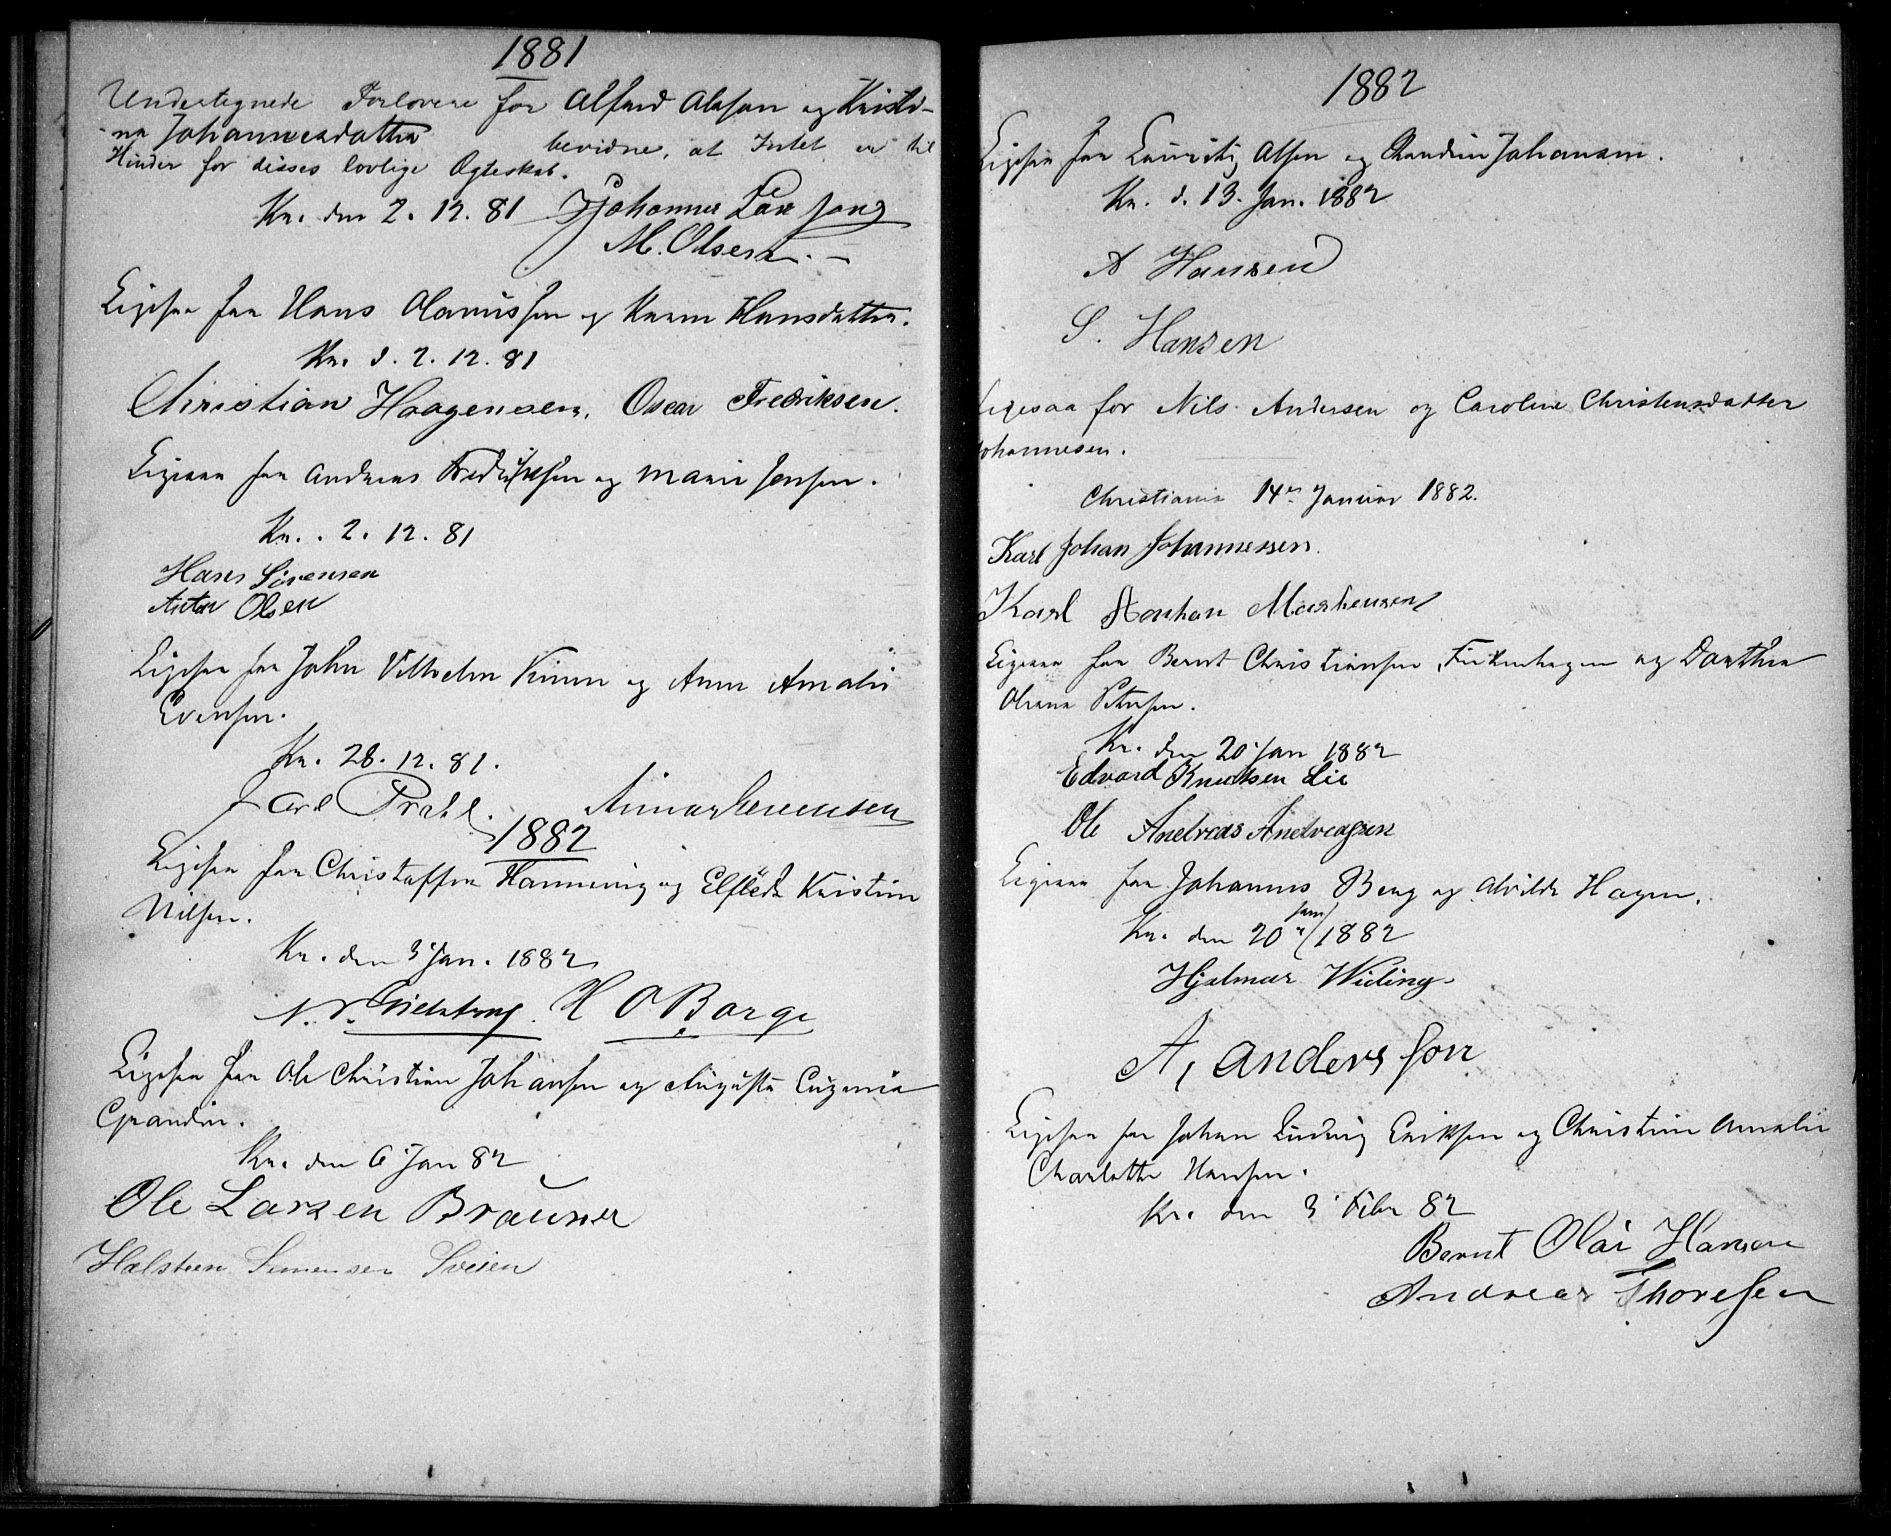 1881
Undertegnede Forlovere for Alfred Olsson og Kristi-
ne Johannesdatter bevidne, at Intet er til
Hinder for disses lovlige Ægteskab.
Kr. den 2. 12. 81 Johannes
M. Olsen
Ligesaa for Hans Olaussen og Karen Hansdatter.
Kr. d. 2. 12. 81
Christian Haagensen. Oscar Fredriksen.
Ligesaa for Andreas Fredriksen og Marie Jensen.
Kr. . 2. 12. 81
Hans Sörensen
Anton Olsen
Ligesaa for John Vilhelm Kinn og Anne Amalie
Evensen.
Kr. 28. 12. 81.
Carl Prahl.
1882
Ligesaa for Christoffer Hanning og Elfleda Kristine
Nilsen.
Kr. den 3 Jan. 1882
H O Borge
Ligesaa for Ole Christian Johansen og Augusta Eugenia
Grandin.
Kr. den 6 Jan 82
Ole Larsen Brauner
Halsten Simensen Sveien
1882
Ligesaa for Lauritz Olsen og Randine Johansen.
Kr. d. 13. Jan. 1882
A Hansen
S. Hansen
Ligesaa for Nils Andersen og Caroline Christensdatter
Johannesen.
Christiania 14de Januar 1882.
Karl Johan Johannessen.
Karl
Ligesaa for Bernt Christiansen Finkenhagen og Dorthea
Oleane Petersen.
Kr. den 20 Jan 1882
Edvard Knudsen Lie
Ole Andreas Andreassen
Ligesaa for Johannes Berg og Alvilde Hagen.
Kr. den 20 Jan/1882
Hjalmar Widing
A, andersson
Ligesaa for Johan Ludvig Eriksen og Christine Amalie
Charlotte Hansen.
Kr. den 3 Febr 82
Bernt Olai Hansen
Andreas Thoresen